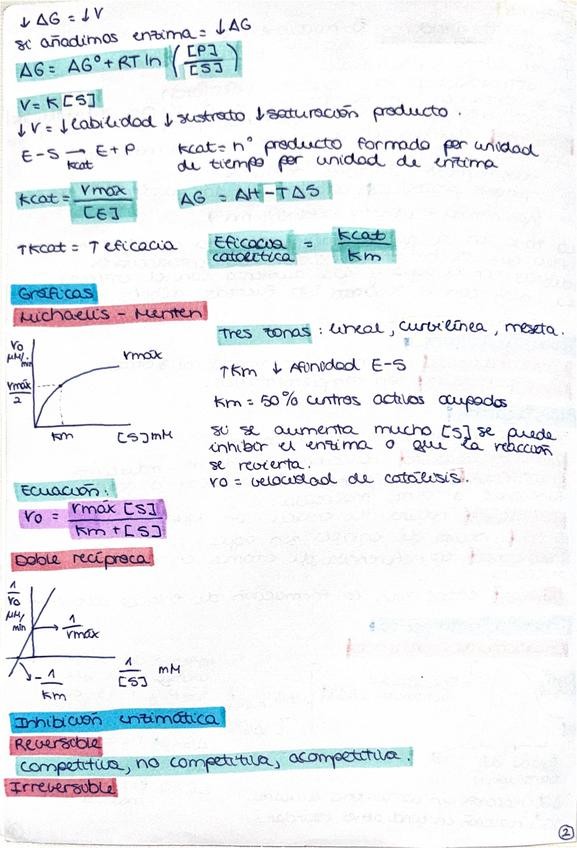 ↓ ΔG = ↓ V
si añadimos enzima = ↓ ΔG
ΔG = ΔG° + RT ln ([P]/[S])
V = K [S]
↓ V = ↓ labilidad ↓ sustrato ↓ saturación producto.
E-S → E + P
kcat
kcat = nº producto formado por unidad
de tiempo por unidad de enzima
kcat = vmáx/[E]
ΔG = ΔH - TΔS
↑ kcat = ↑ eficacia
Eficacia catalítica = kcat/km
Gráficas
Michaelis - Menten
Tres zonas : lineal, curvilínea, meseta.
v0 μM/min
vmáx
vmáx/2
km
[S] mM
↑ Km ↓ Afinidad E-S
Km = 50% centros activos ocupados
si se aumenta mucho [S] se puede
inhibir el enzima o que la reacción
se revierta.
v0 = velocidad de catálisis.
Ecuación:
v0 = vmáx [S]/km + [S]
Doble recíproca
1/v0 μM/min
1/vmáx
-1/km
1/[S] mM
Inhibición enzimática
Reversible
competitiva, no competitiva, acompetitiva.
Irreversible
2